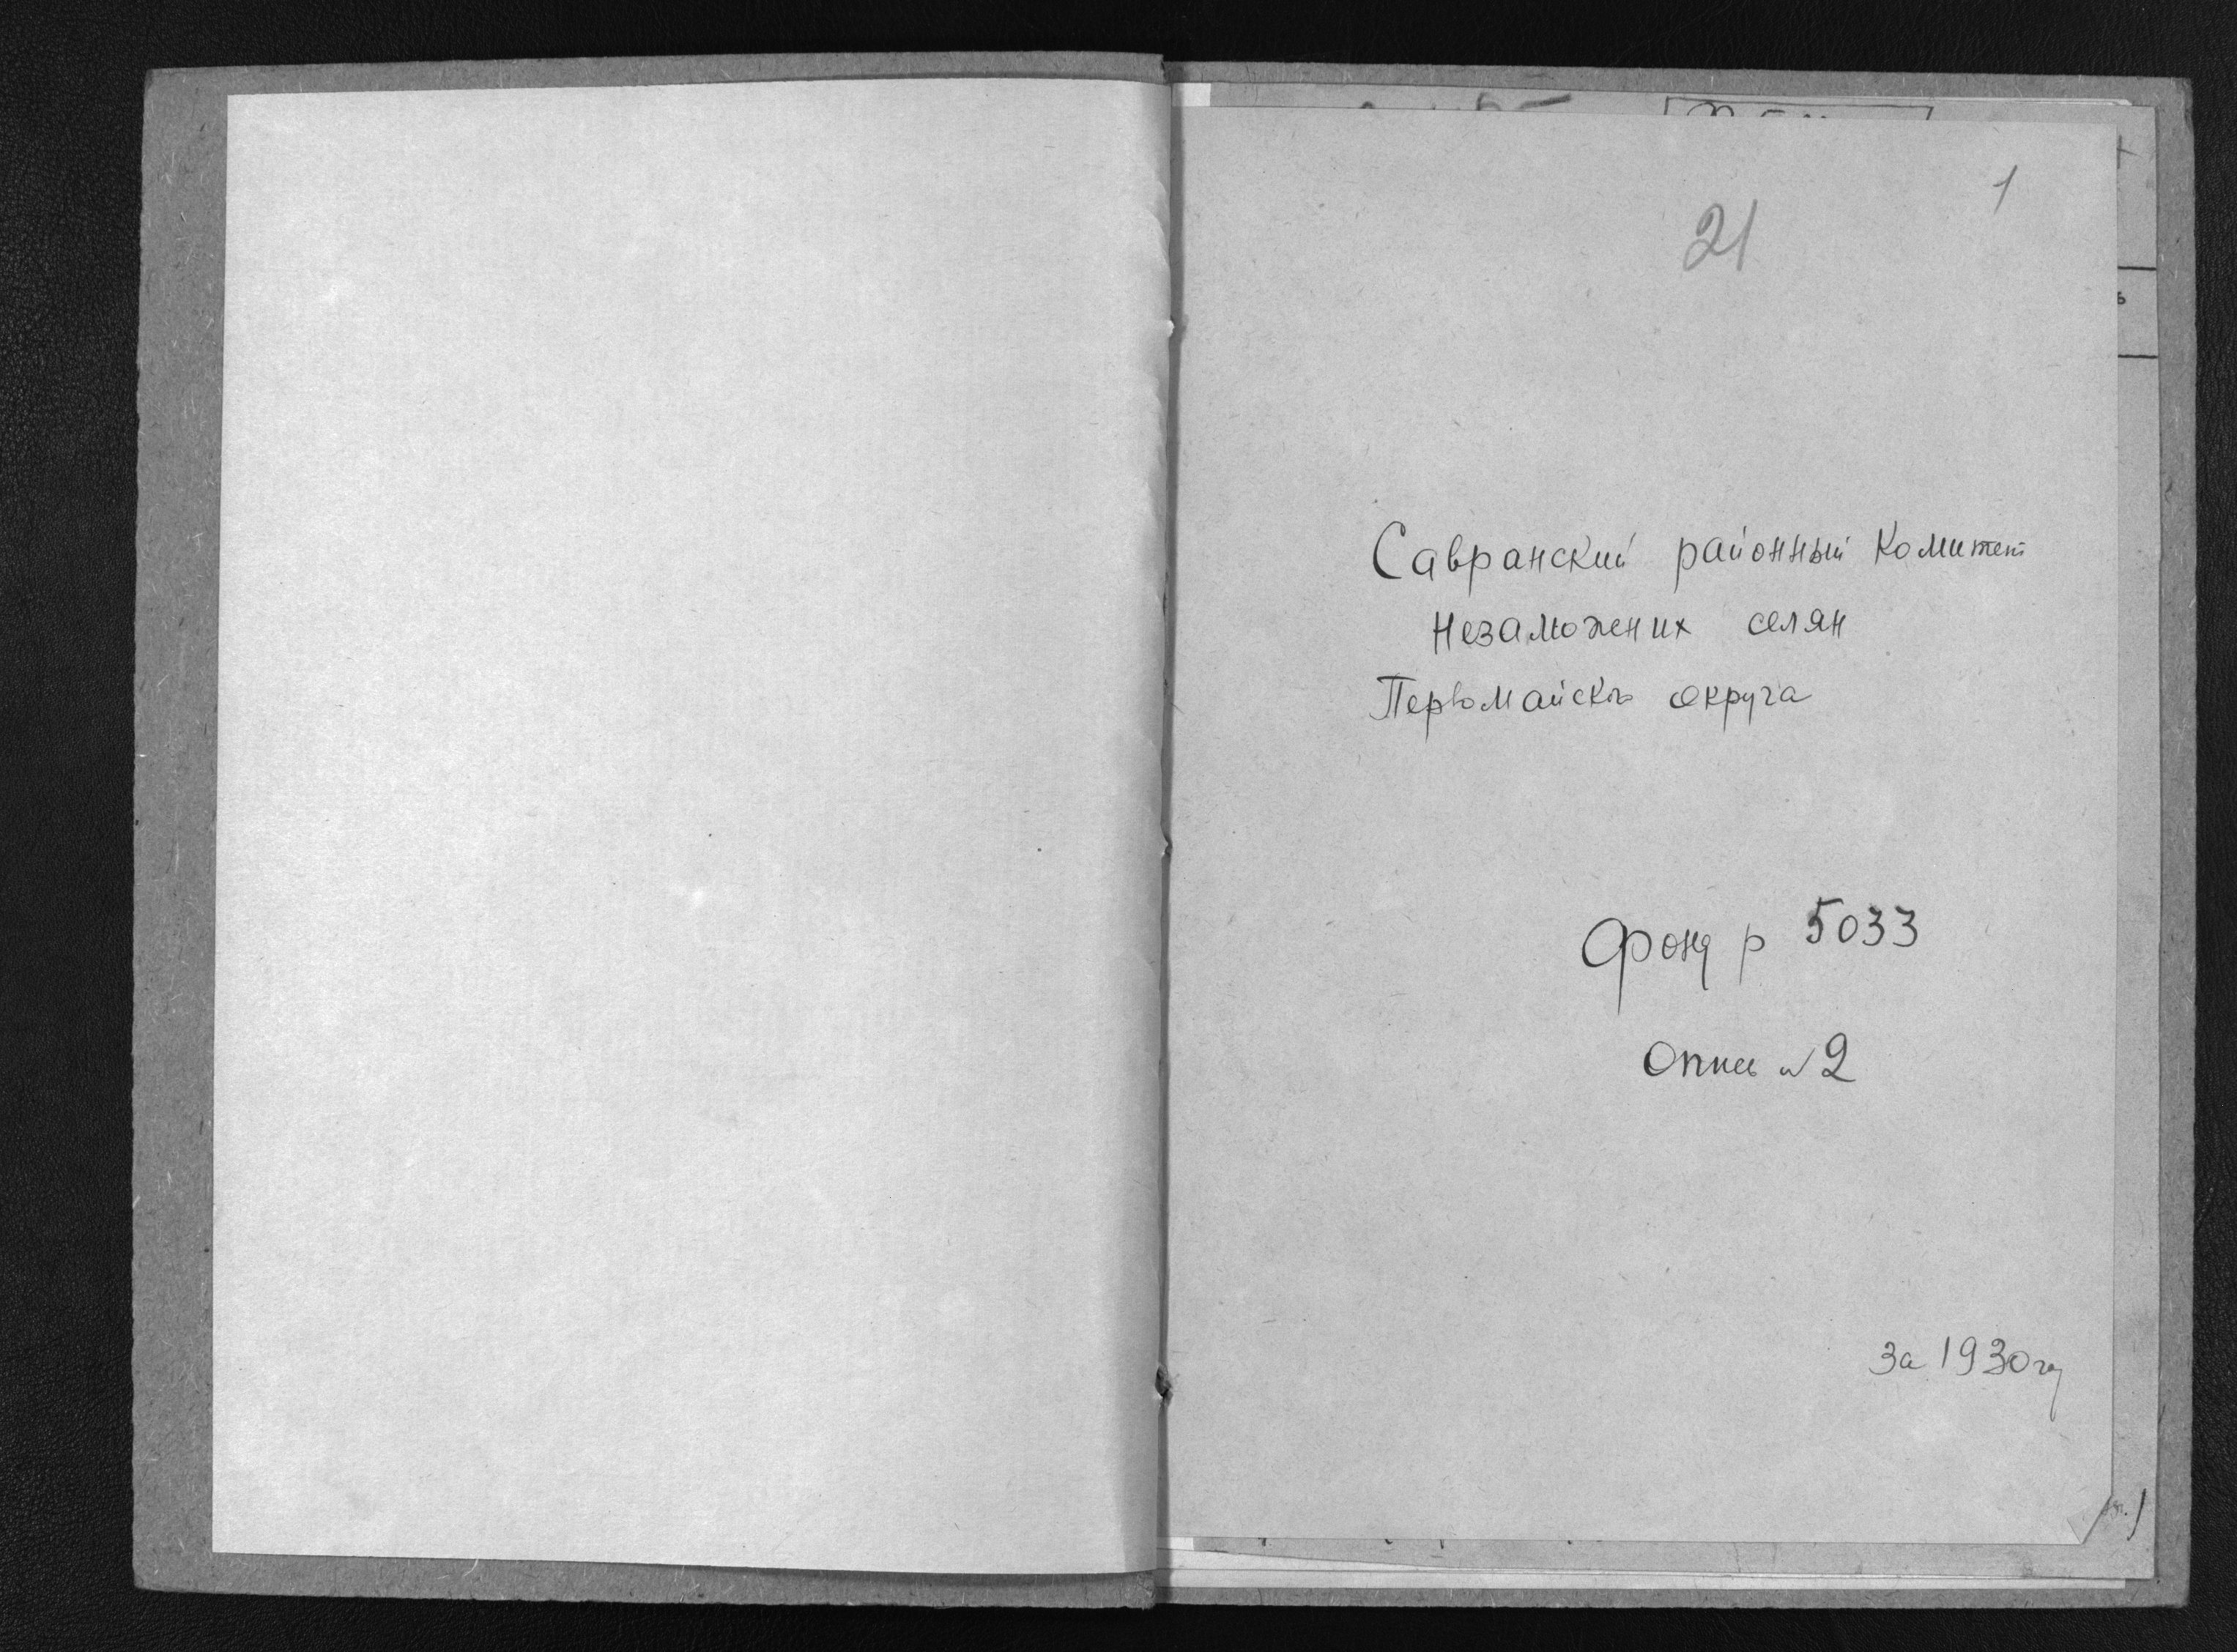 1
21
Савранский районный Комитет
Незаможених селян
Первомайского округа
Фонд р 5033
Опись №2
За 1930 год